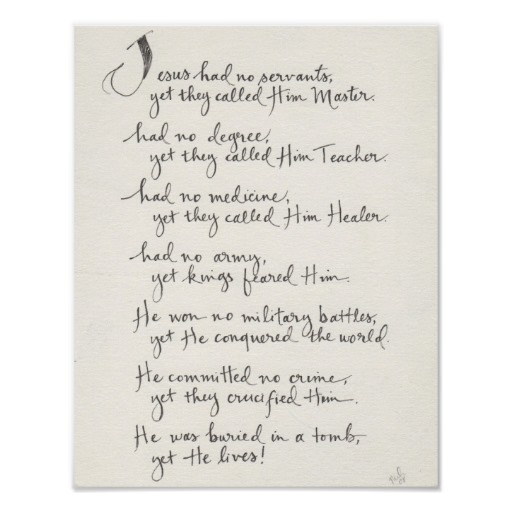 Jesus had no servants,
yet they called Him Master.
had no degree,
yet they called Him Teacher.
had no medicine,
yet they called Him Healer.
had no army,
yet kings feared Him.
He won no military battles,
yet He conquered the world.
He committed no crime,
yet they crucified Him.
He was buried in a tomb,
yet He lives!